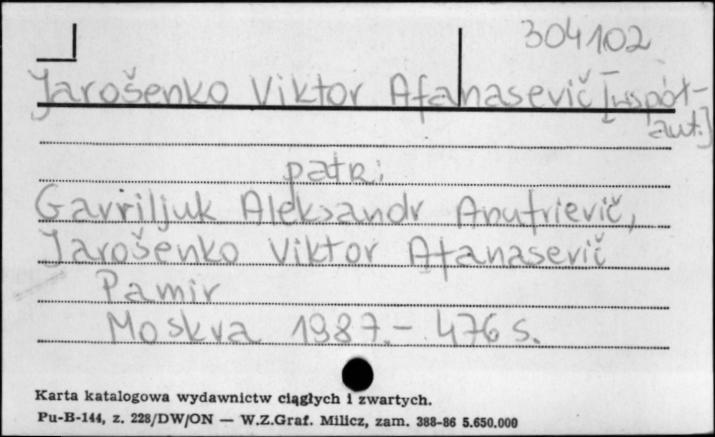 304102
Jarošenko Viktor Afanasevič [współ-
aut.]
patrz:
Gavriljuk Aleksandr Anufrievič,
Jarošenko Viktor Afanasevič
Pamir
Moskva 1987. - 476 s.
Karta katalogowa wydawnictw ciągłych i zwartych.
Pu-B-144, z. 228/DW/ON — W.Z.Graf. Milicz, zam. 388-86 5.650.000